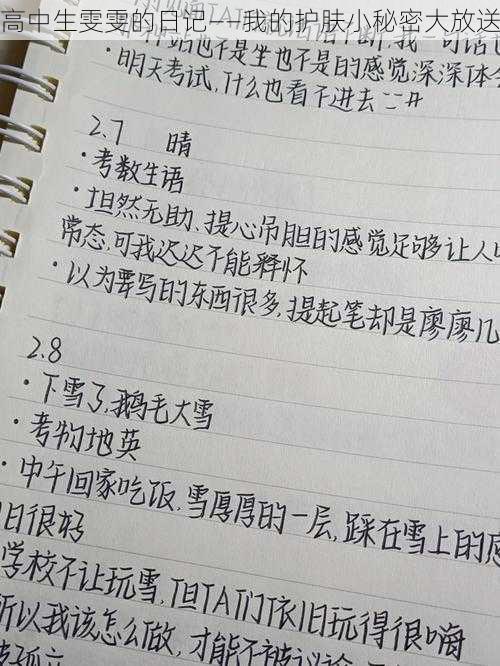 高中生雯雯的日记——我的护肤小秘密大放送
站也不是坐也不是的感觉深深体
·明天考试,什么也看不进去
2.7 晴
·考数生语
·坦然无助、提心吊胆的感觉足够让人
常态,可我迟迟不能释怀
·以为要写的东西很多,提起笔却是廖廖几
2.8
·下雪了,鹅毛大雪
·考物地英
·中午回家吃饭,雪厚厚的一层,踩在雪上的感
日很好
学校不让玩雪,但TA们依旧玩得很嗨
所以我该怎么做,才能不被议论
孤立